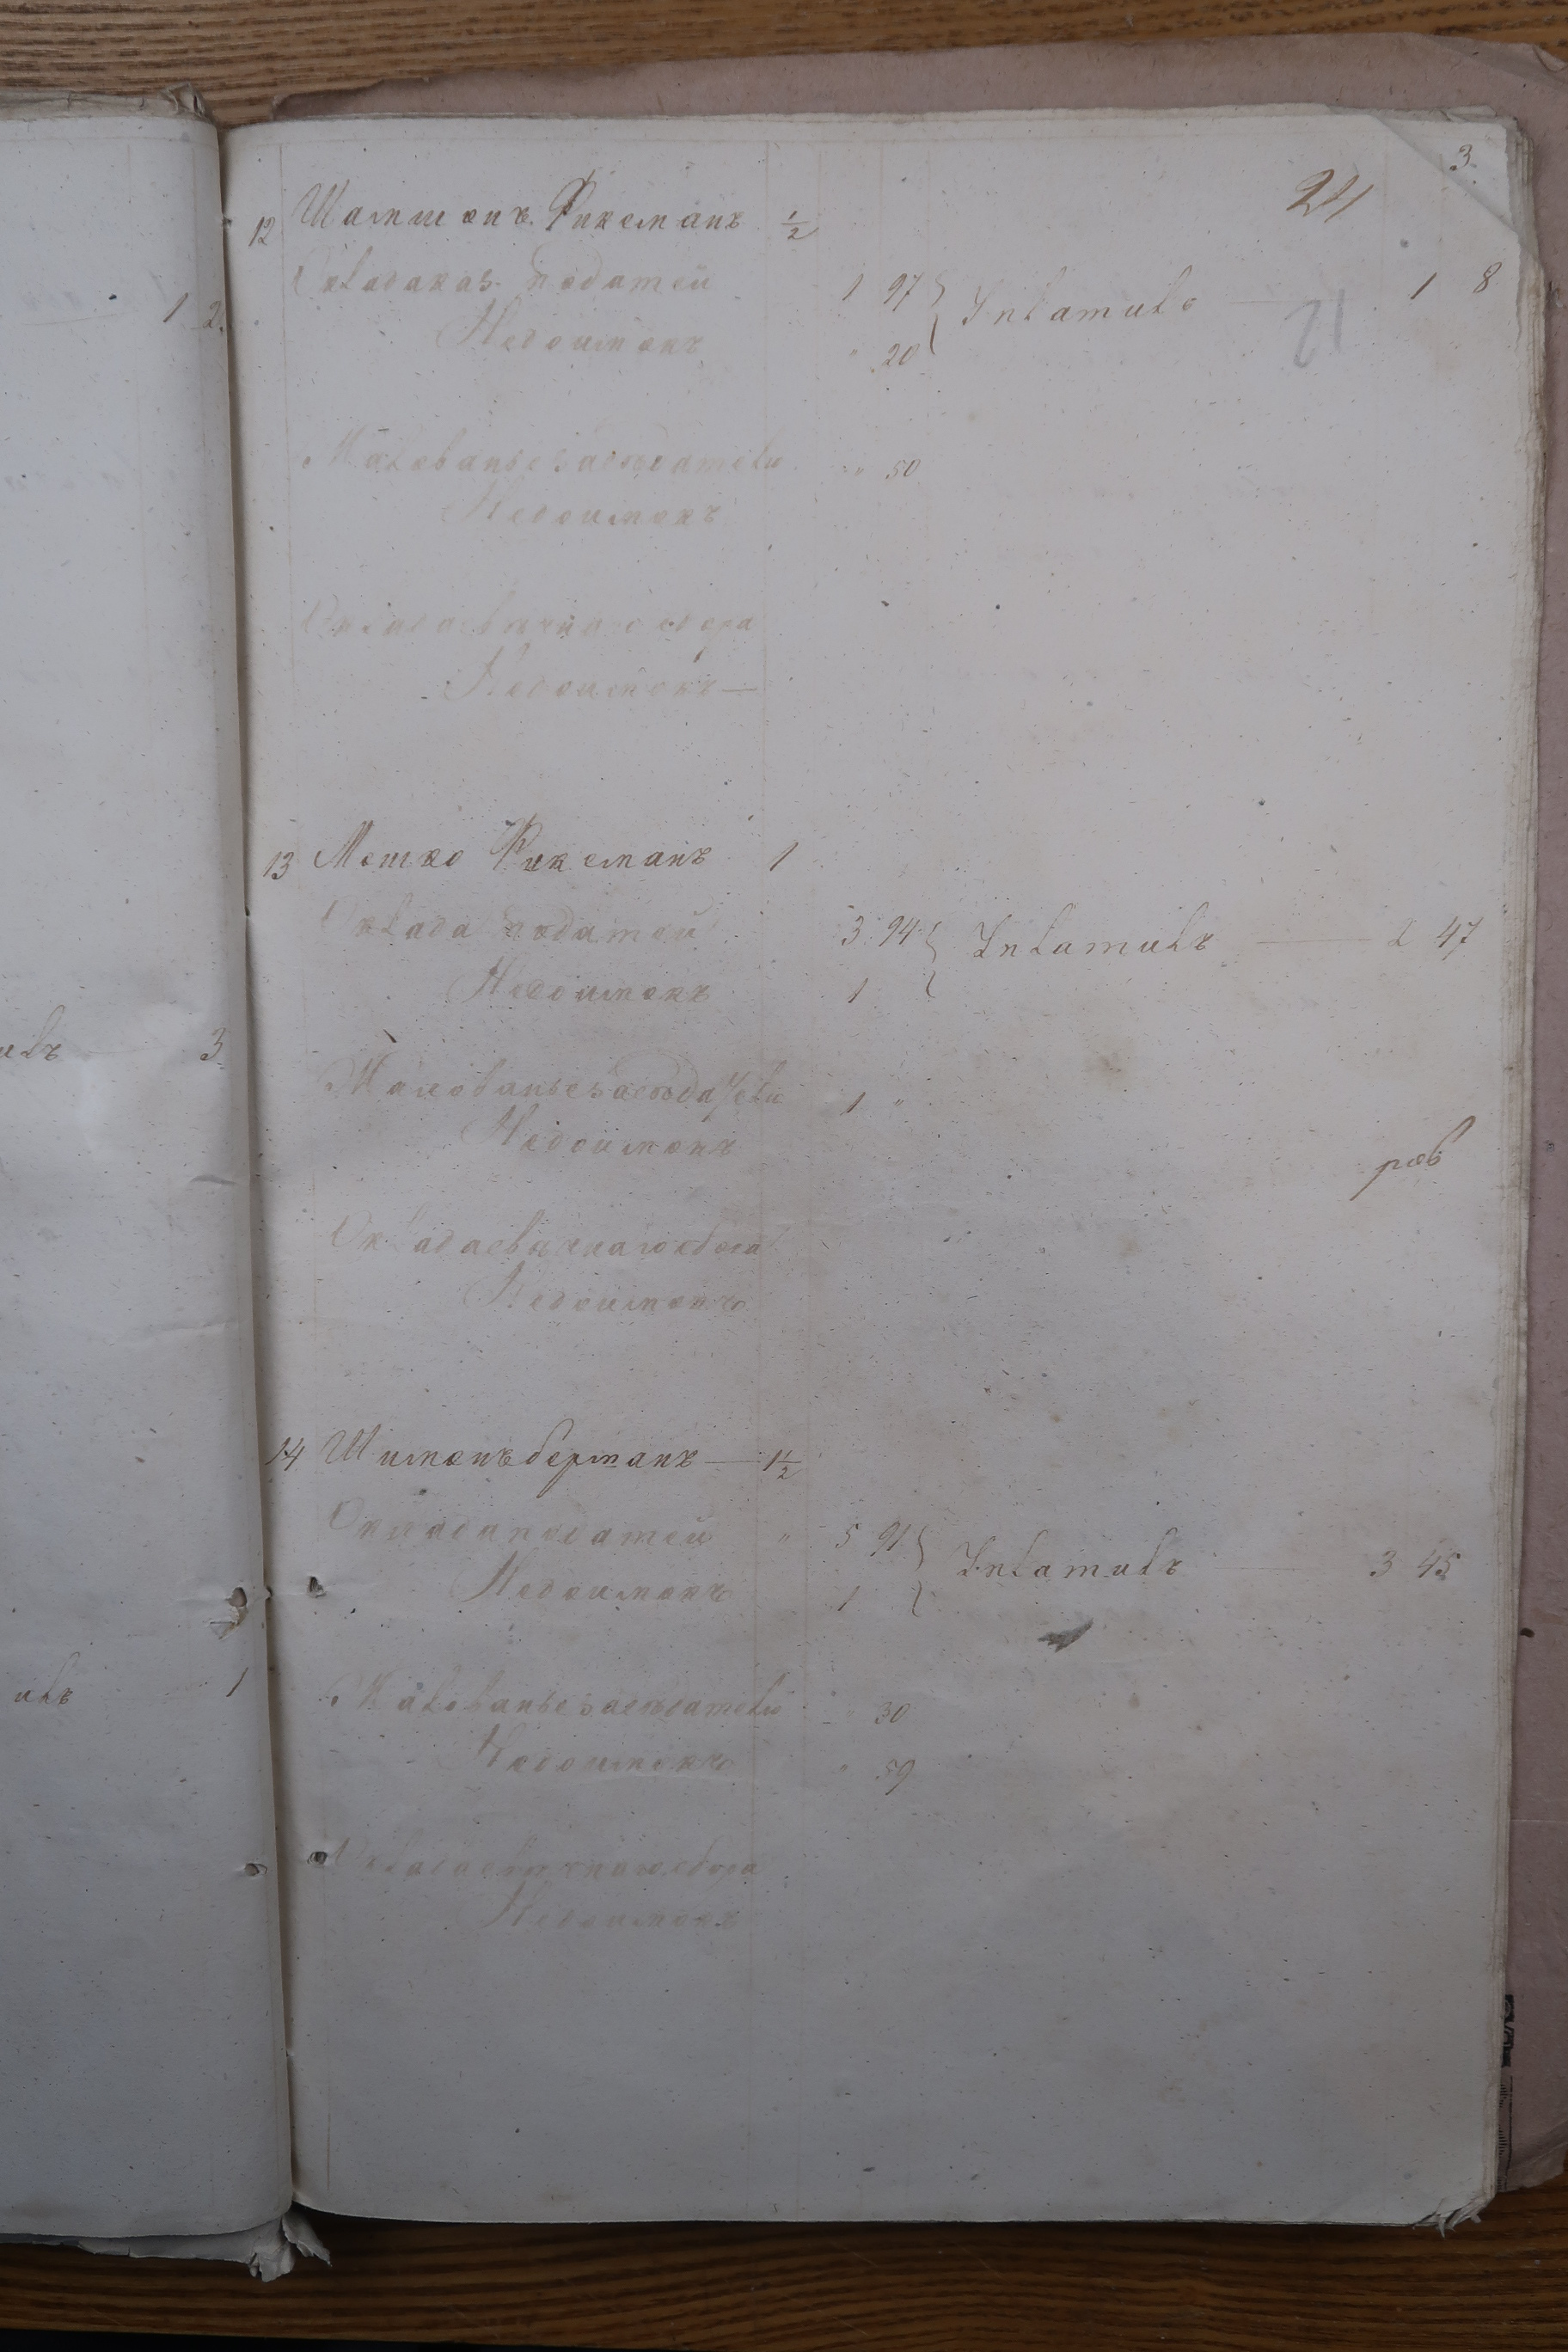 3.
24
21
12 Шамшонъ Фиксманъ ½
Оклада каз. податей 1 97 Уплатилъ 1 8
Недоимокъ " 20
Жалованье засѣдателю " 50
Недоимокъ
Оклада свѣчнаго сбора
Недоимокъ —
13 Мошко Фиксманъ 1
Оклада податей 3 94 Уплатилъ — 2 47
Недоимокъ 1
Жалованье засѣдателю 1 "
Недоимокъ
Оклада свѣчнаго сбора
Недоимокъ
14 Шимонъ берманъ — 1½
Оклада податей " 5 91 Уплатилъ — 3 45
Недоимокъ 1
Жалованье засѣдателю " 30
Недоимокъ " 59
Оклада свѣчнаго сбора
Недоимокъ
1 2.
илъ 3
илъ 1